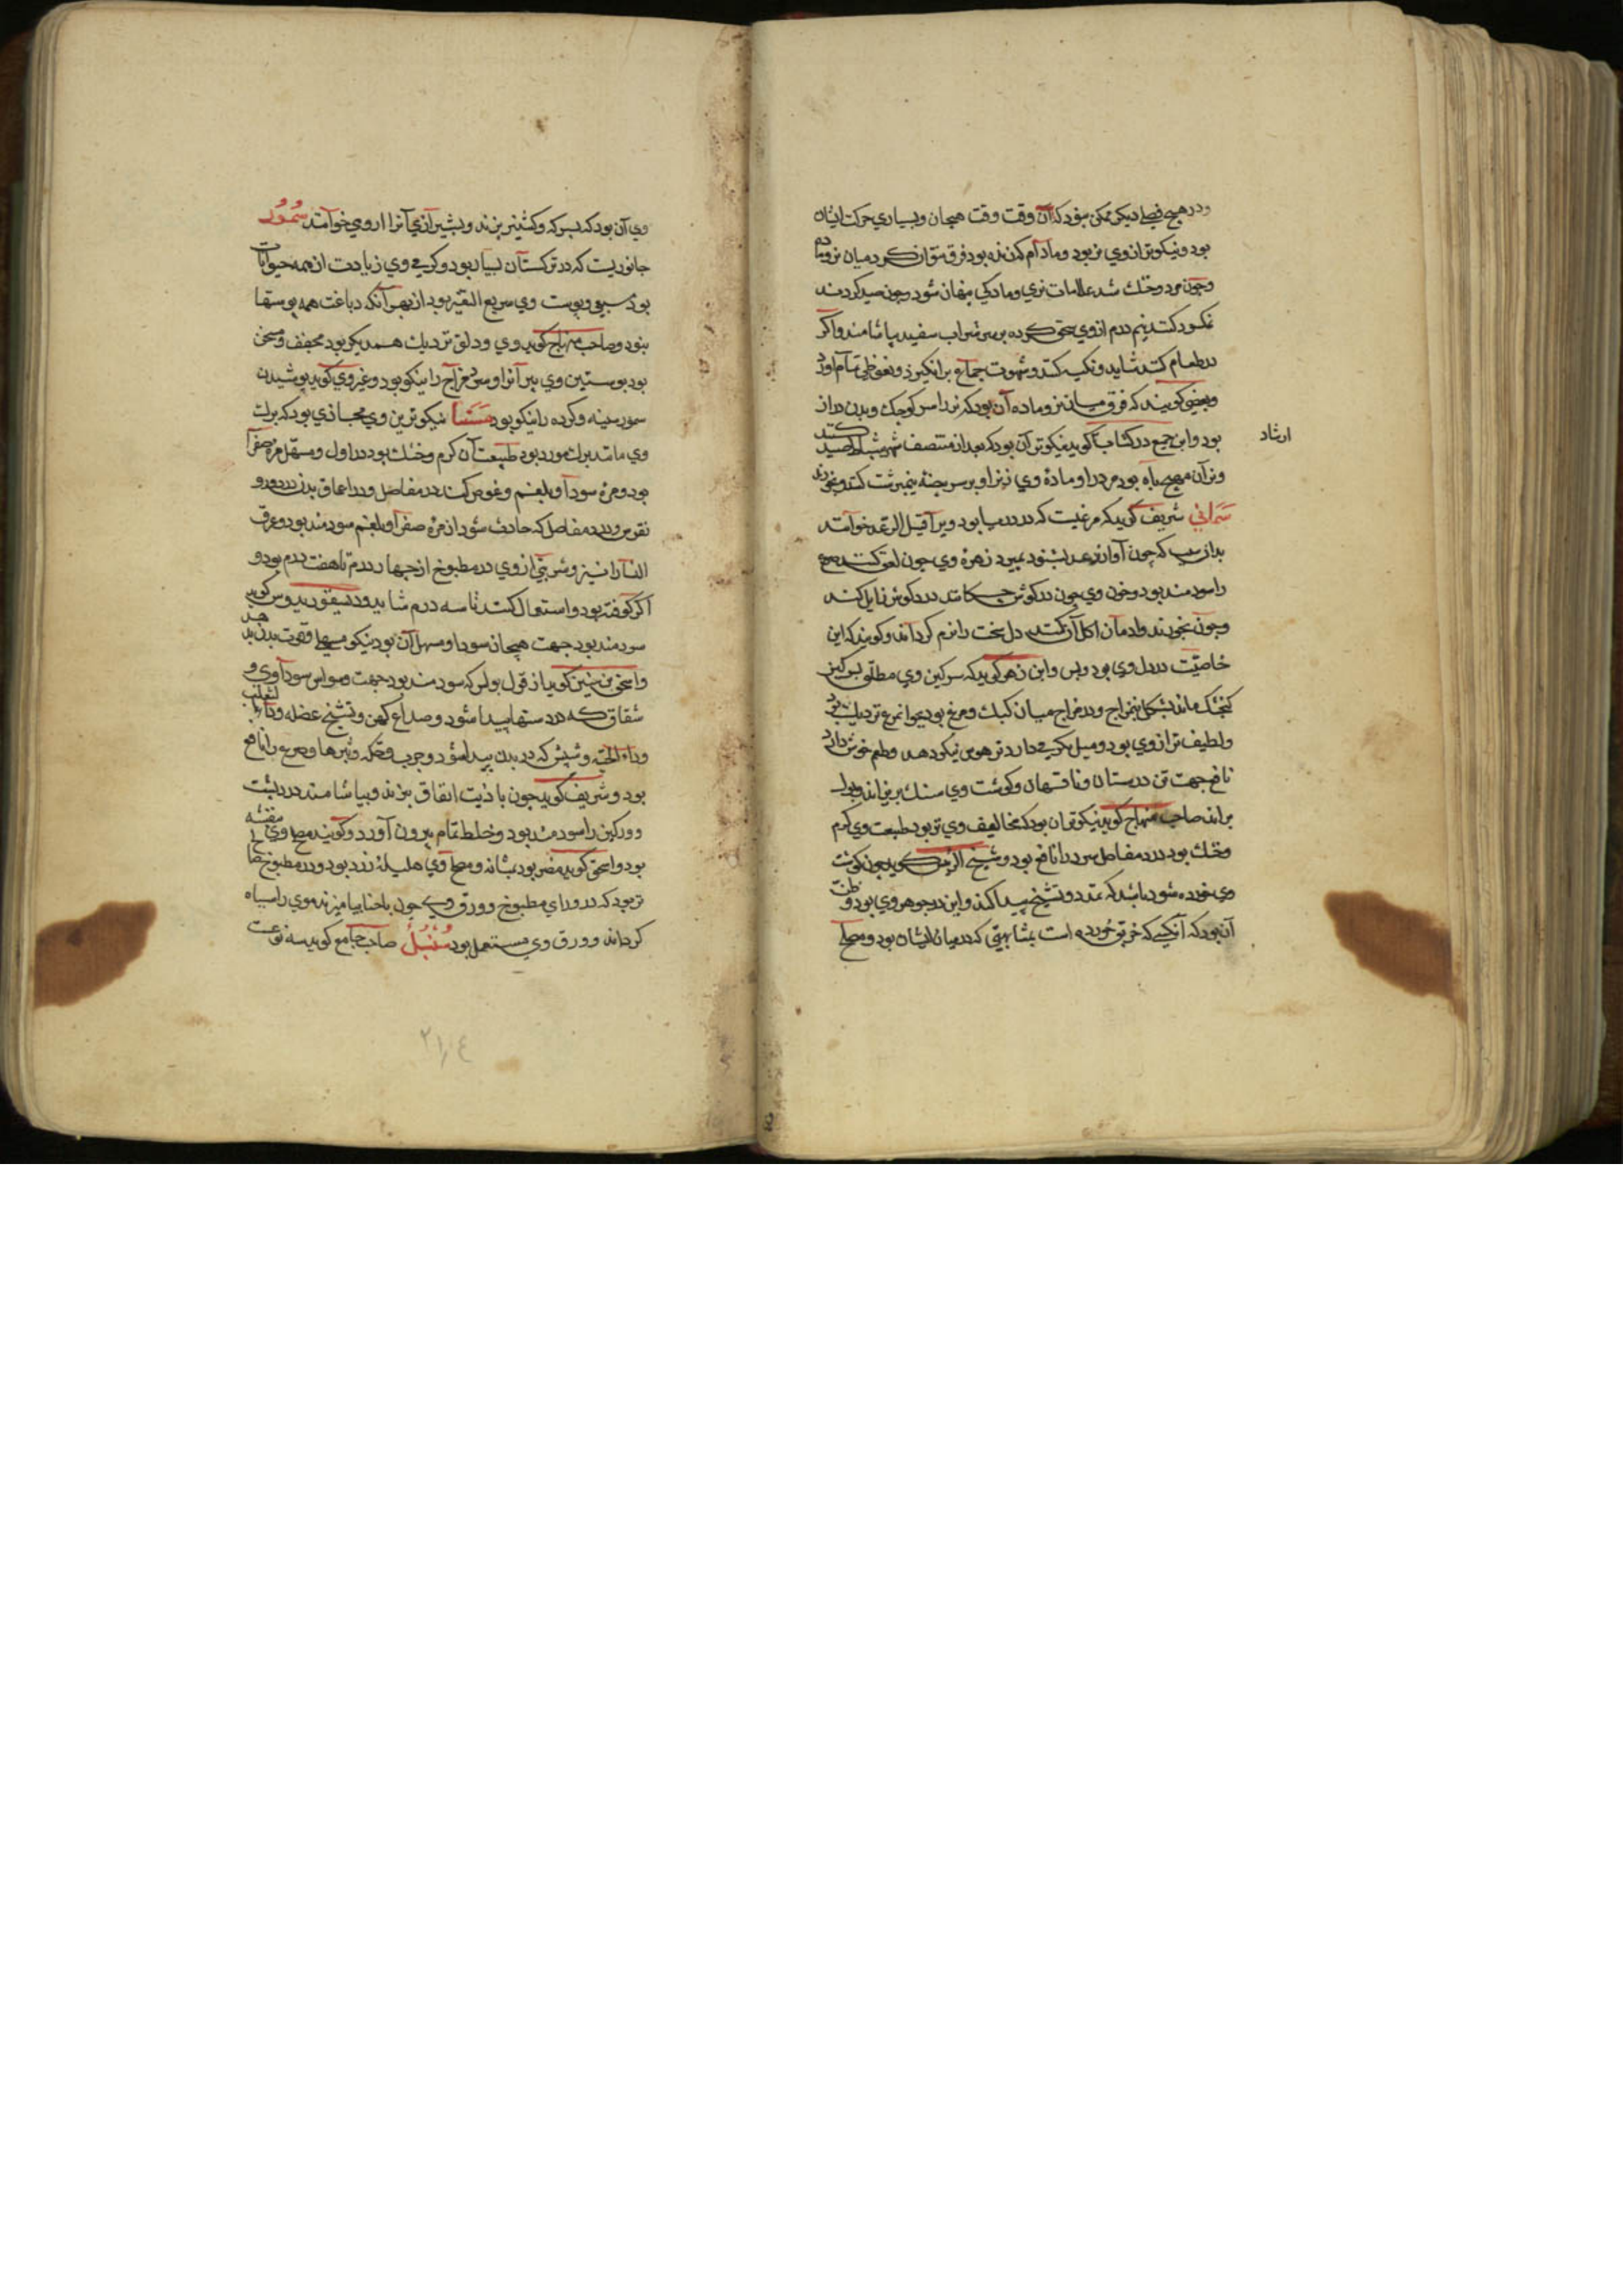 ودر هیچ فصلی دیکر ممکن نبود که آن وقت وقت هیجان وبسیاری حرکت ایشان
بود ونیکوتر از وی نر بود ومادام که زنده بود فرق توان کرد میان نر وماده
وچون مرد وخشك شد علامات نری ومادکی پنهان شود وچون صید کردند
نمکسود کنند نیم درم از وی سحق کرده بر سر شراب سفید بیاشامند واکر
در طعام کنند شاید وتکیه کند وشهوت جماع برانکیزد ونعوظی تمام آورد
وبعضی کویند که فرق میان نر وماده آن بود که نر را سر کوچك وبدن دراز
بود وابن جمیع در کتاب ارشاد کوید نیکوتر آن بود که بعد از منتصف شهر شباط صید کنند
ارشاد
ونر آن مهیج باه بود مردرا ومادهٔ وی زنرا وبر سر بیضهٔ نیمبرشت کنند وبخورند
سمانی شریف کوید که مرغیست که در دریا بود ویرا قتیل الرعد خوانند
بدان سبب که چون آواز رعد بشنود بمیرد زهرهٔ وی چون لعق کنند صرع
را سودمند بود وخون وی چون در کوش چکانند درد کوش زایل کند
وچون بخورند وادمان اکل آن کنند دل سخت را نرم کرداند وکویند که این
خاصیت در دل وی بود وبس وابن زهر کوید که سرکین وی مطلق
کنجشك ماند بشکل بمزاج ودر مزاج میان کبك ومرغ بود بجوانمرغ نزدیك تر بود
ولطیف تر از وی بود ومیل بکرمی دارد نزهوس نیکو دهد وطعم خوش دارد
نافع جهت تن درستان وناقهان وکوشت وی سنك بریزاند وبول
براند صاحب منهاج کوید نیکوتر آن بود که مخالیف وی تر بود طبیعت وی کرم
وخشك بود درد مفاصل سرد را نافع بود وشیخ الرئیس کوید چون کوشت
وی خورده شود باشد که تمدد وتشنج پیدا کند واین در جوهر وی بود وظن
آن بود که آنکسی که خربق خورده است بمشابهتی که در میان ایشان بود ومصلح
وی آن بود که بسرکه وکشنیز بپزند وبشیرازی آنرا اروی خوانند سمور
جانوریست که در ترکستان بسیار بود وکرمی وی زیادت از همه حیوانات
بود سبعی وپوست وی سریع التغیر بود از بهر آنکه دباغت همه پوستها
نبود وصاحب منهاج کوید وی ودلق نزدیك همدیکر بود مجفف ومسخن
بود پوستین وی پیرانرا وسرد مزاج را نیکو بود وغیر وی کوید پوشیدن
سمور سینه وکرده را نیکو بود سنا نیکوترین وی حجازی بود که برك
وی مانند برك مورد بود طبیعت آن کرم وخشك بود در اول ومسهل مره صفرا
بود ومره سودا وبلغم وغوص کند در مفاصل ودر اعماق بدن درد
نقرس ودرد مفاصل که حادث شود از مره صفرا وبلغم سودمند بود وعرق
النسا را نیز وشربتی از وی در مطبوخ از چهار درم تا هفت درم بود و
اکر کوفته بود واستعمال کنند تا سه درم شاید ودیسقوریدوس کوید
سودمند بود جهت هیجان سودا ومسهل آن بود نیکو مسهلی
واسحق بن حنین کوید از قول بولس که سودمند بود جهت وسواس سوداوی و
شقاق که در دستها پیدا شود وصداع کهن وتشنج عضله وداء الثعلب
وداء الحیه وشپش که در بدن پیدا شود وجرب وحکه وبثرها وصرع را نافع
بود وشریف کوید چون با زیت انفاق بپزند وبیاشامند درد پشت
وورکین را سودمند بود وخلط تمام بیرون آورد وکویند مصلح وی بنفشه
بود واسحق کوید مضر بود بمثانه ومصلح وی هلیله زرد بود ودر مطبوخ
بود که در ورای مطبوخ وورق وی چون با حنا بیامیزند موی را سیاه
کرداند وورق وی مستعمل بود سنبل صاحب جامع کوید سه نوعست
٢١٤